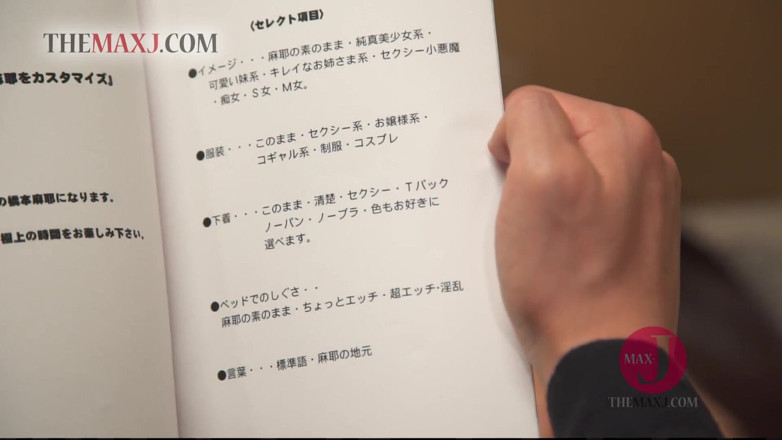 THEMAXJ.COM
耶をカスタマイズ』
の橋本麻耶になります。
極上の時間をお楽しみ下さい。
〈セレクト項目〉
●イメージ・・・麻耶の素のまま・純真美少女系・
可愛い妹系・キレイなお姉さま系・セクシー小悪魔
・痴女・S女・M女。
●服装・・・このまま・セクシー系・お嬢様系・
コギャル系・制服・コスプレ
●下着・・・このまま・清楚・セクシー・Tバック
ノーパン・ノーブラ・色もお好きに
選べます。
●ベッドでのしぐさ・・
麻耶の素のまま・ちょっとエッチ・超エッチ・淫乱
●言葉・・・標準語・麻耶の地元
MAX-J
THEMAXJ.COM